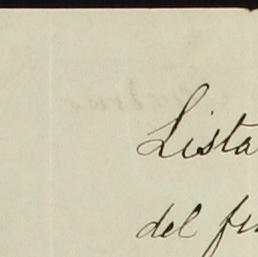 Lista
del